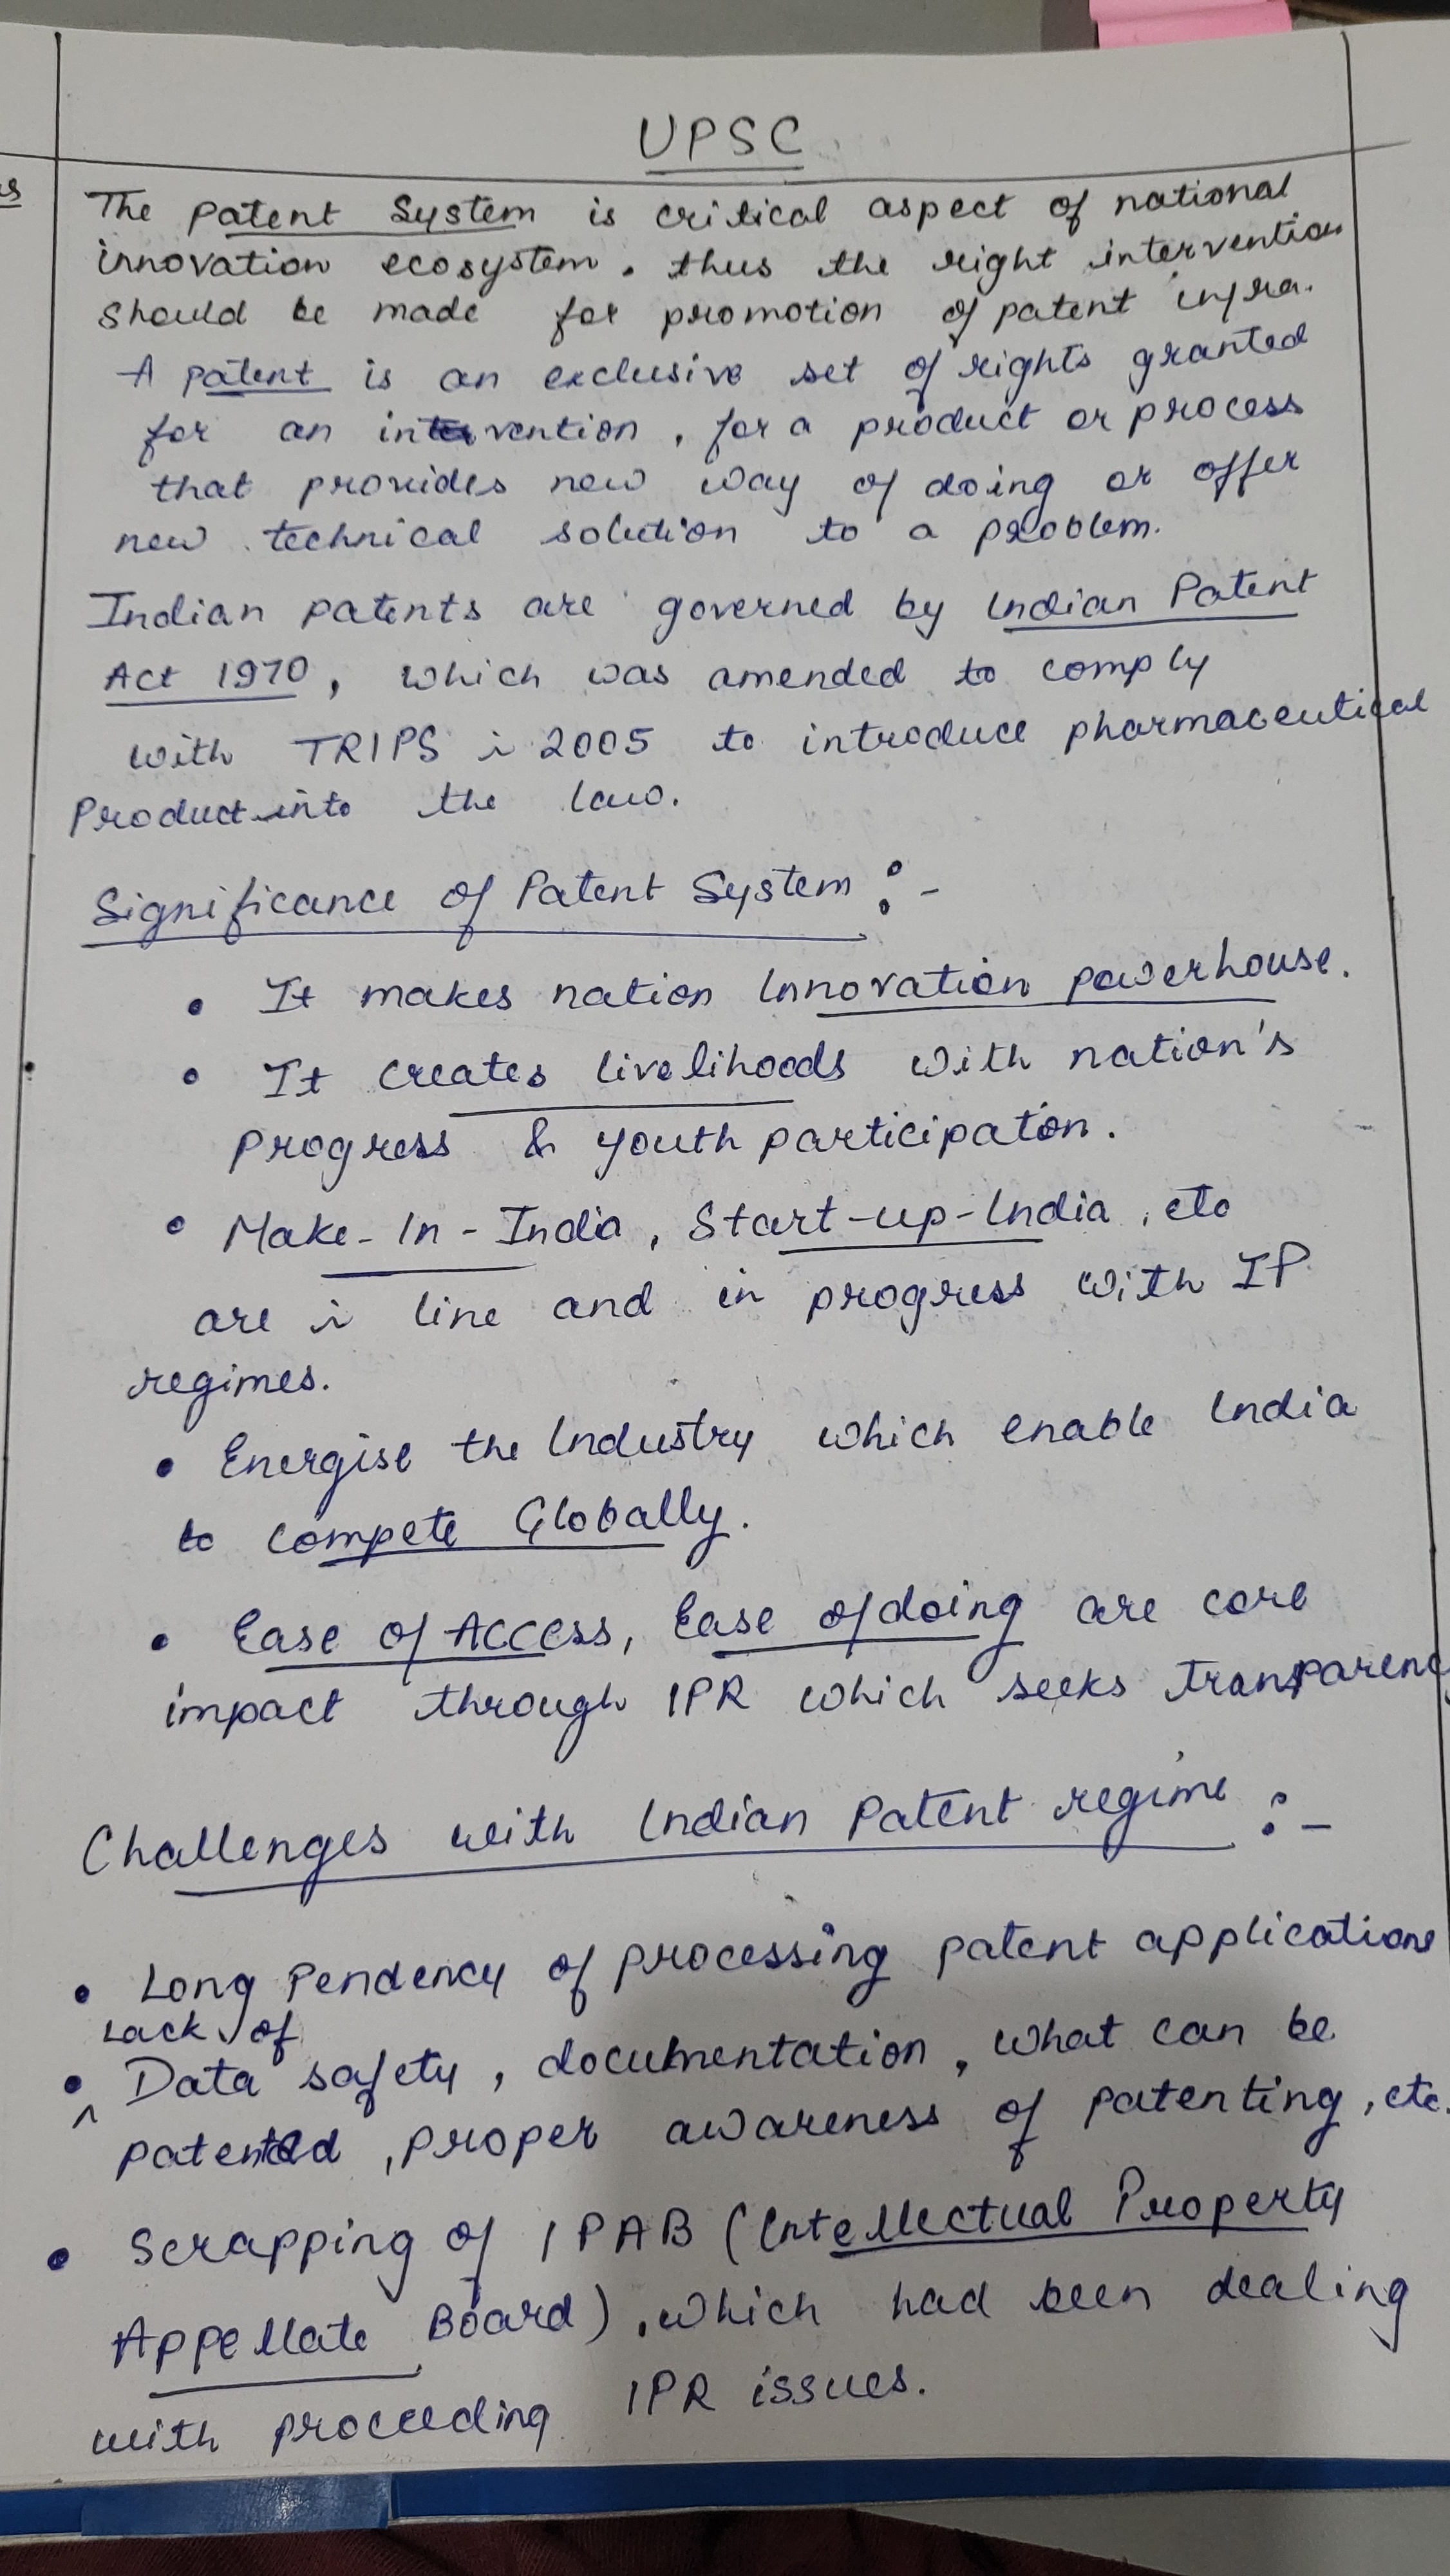 UPSC
The Patent System is critical aspect of national
innovation ecosystem. thus the right intervention
should be made for promotion of patent infra.
A patent is an exclusive set of rights granted
for an intervention, for a product or process
that provides new way of doing or offer
new technical solution to a problem.
Indian patents are governed by Indian Patent
Act 1970, which was amended to comply
with TRIPS in 2005 to introduce pharmaceutical
Product into the law.
Significance of Patent System :-
• It makes nation Innovation powerhouse.
• It creates livelihoods with nation's
progress & youth participaton.
• Make-In-India, Start-up-India, etc
are in line and in progress with IP
regimes.
• Energise the Industry which enable India
to compete Globally.
• Ease of Access, Ease of doing are core
impact through IPR which seeks
Challenges with Indian Patent regime :-
• Long Pendency of processing patent applications
Lack of
• Data safety, documentation, what can be
patented, proper awareness of patenting, etc.
• Scrapping of IPAB (Intellectual Property
Appellate Board), which had been dealing
with proceeding IPR issues.